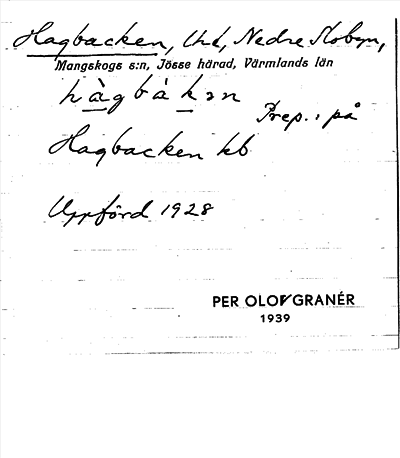 Hagbacken, Uhd, Nedre Slobyn,
Mangskogs s:n, Jösse härad, Värmlands län
hàgbàkən
Prep.: på
Hagbacken kb
Uppförd 1928
PER OLOF GRANÉR
1939